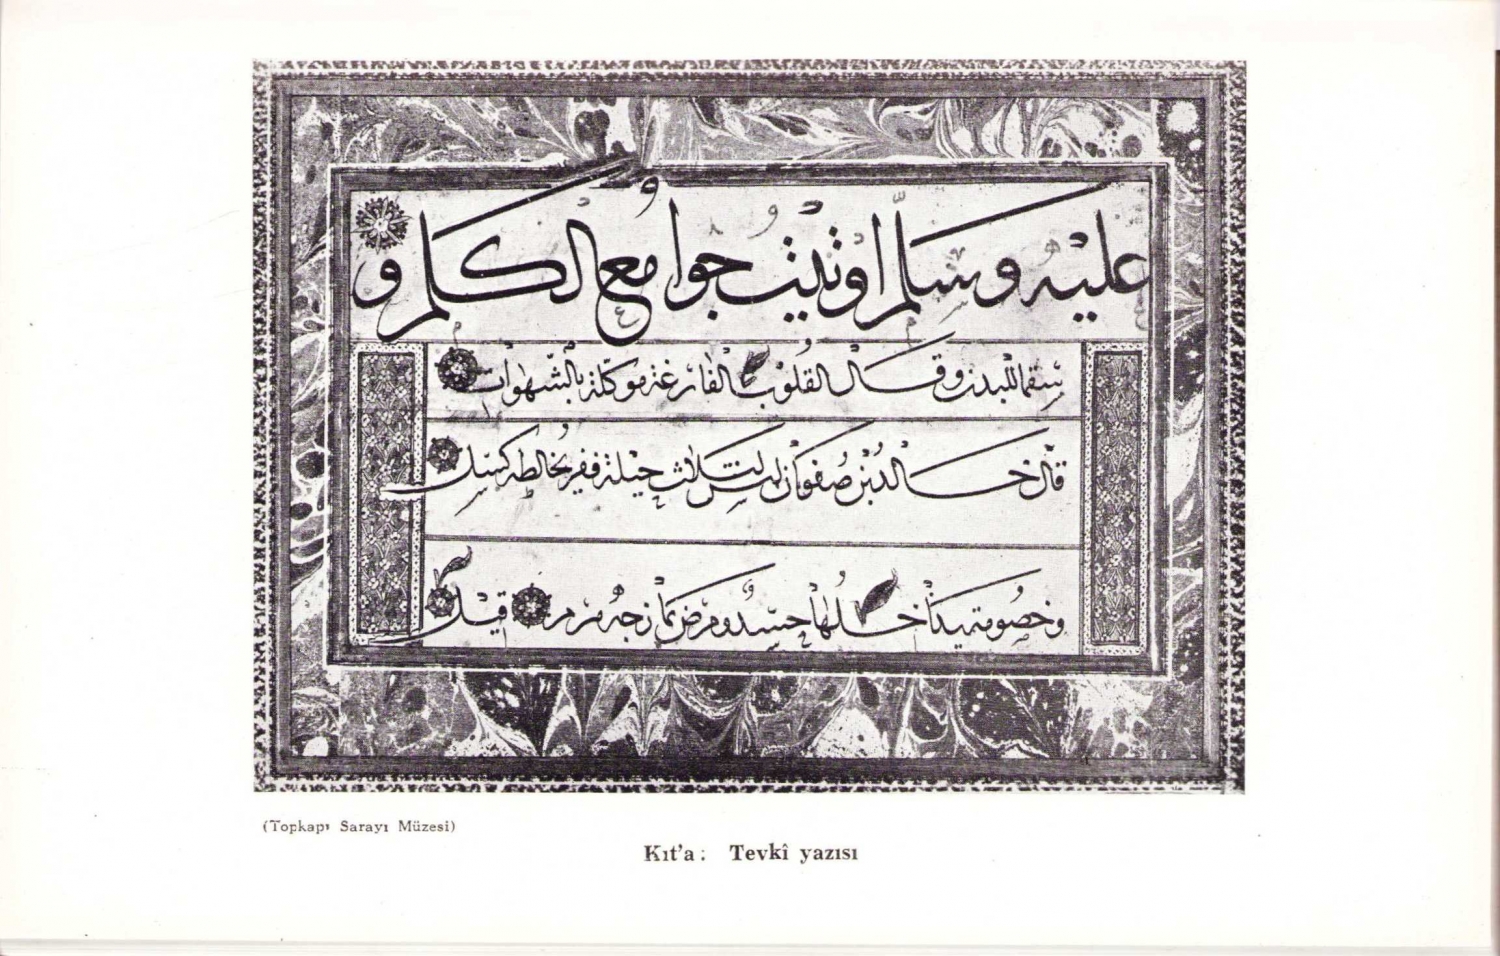 عليه وسلم اوتيت جوامع الكلم و
سقما للبدن وقال القلوب الفارغة موكلة بالشهوات
قال خالد بن صفوان ليس لثلاث حيلة فقر يخالطه كسل
وخصومة يداخلها حسد ومرض يمازجه هرم قيل
(Topkapı Sarayı Müzesi)
Kıt'a : Tevkî yazısı